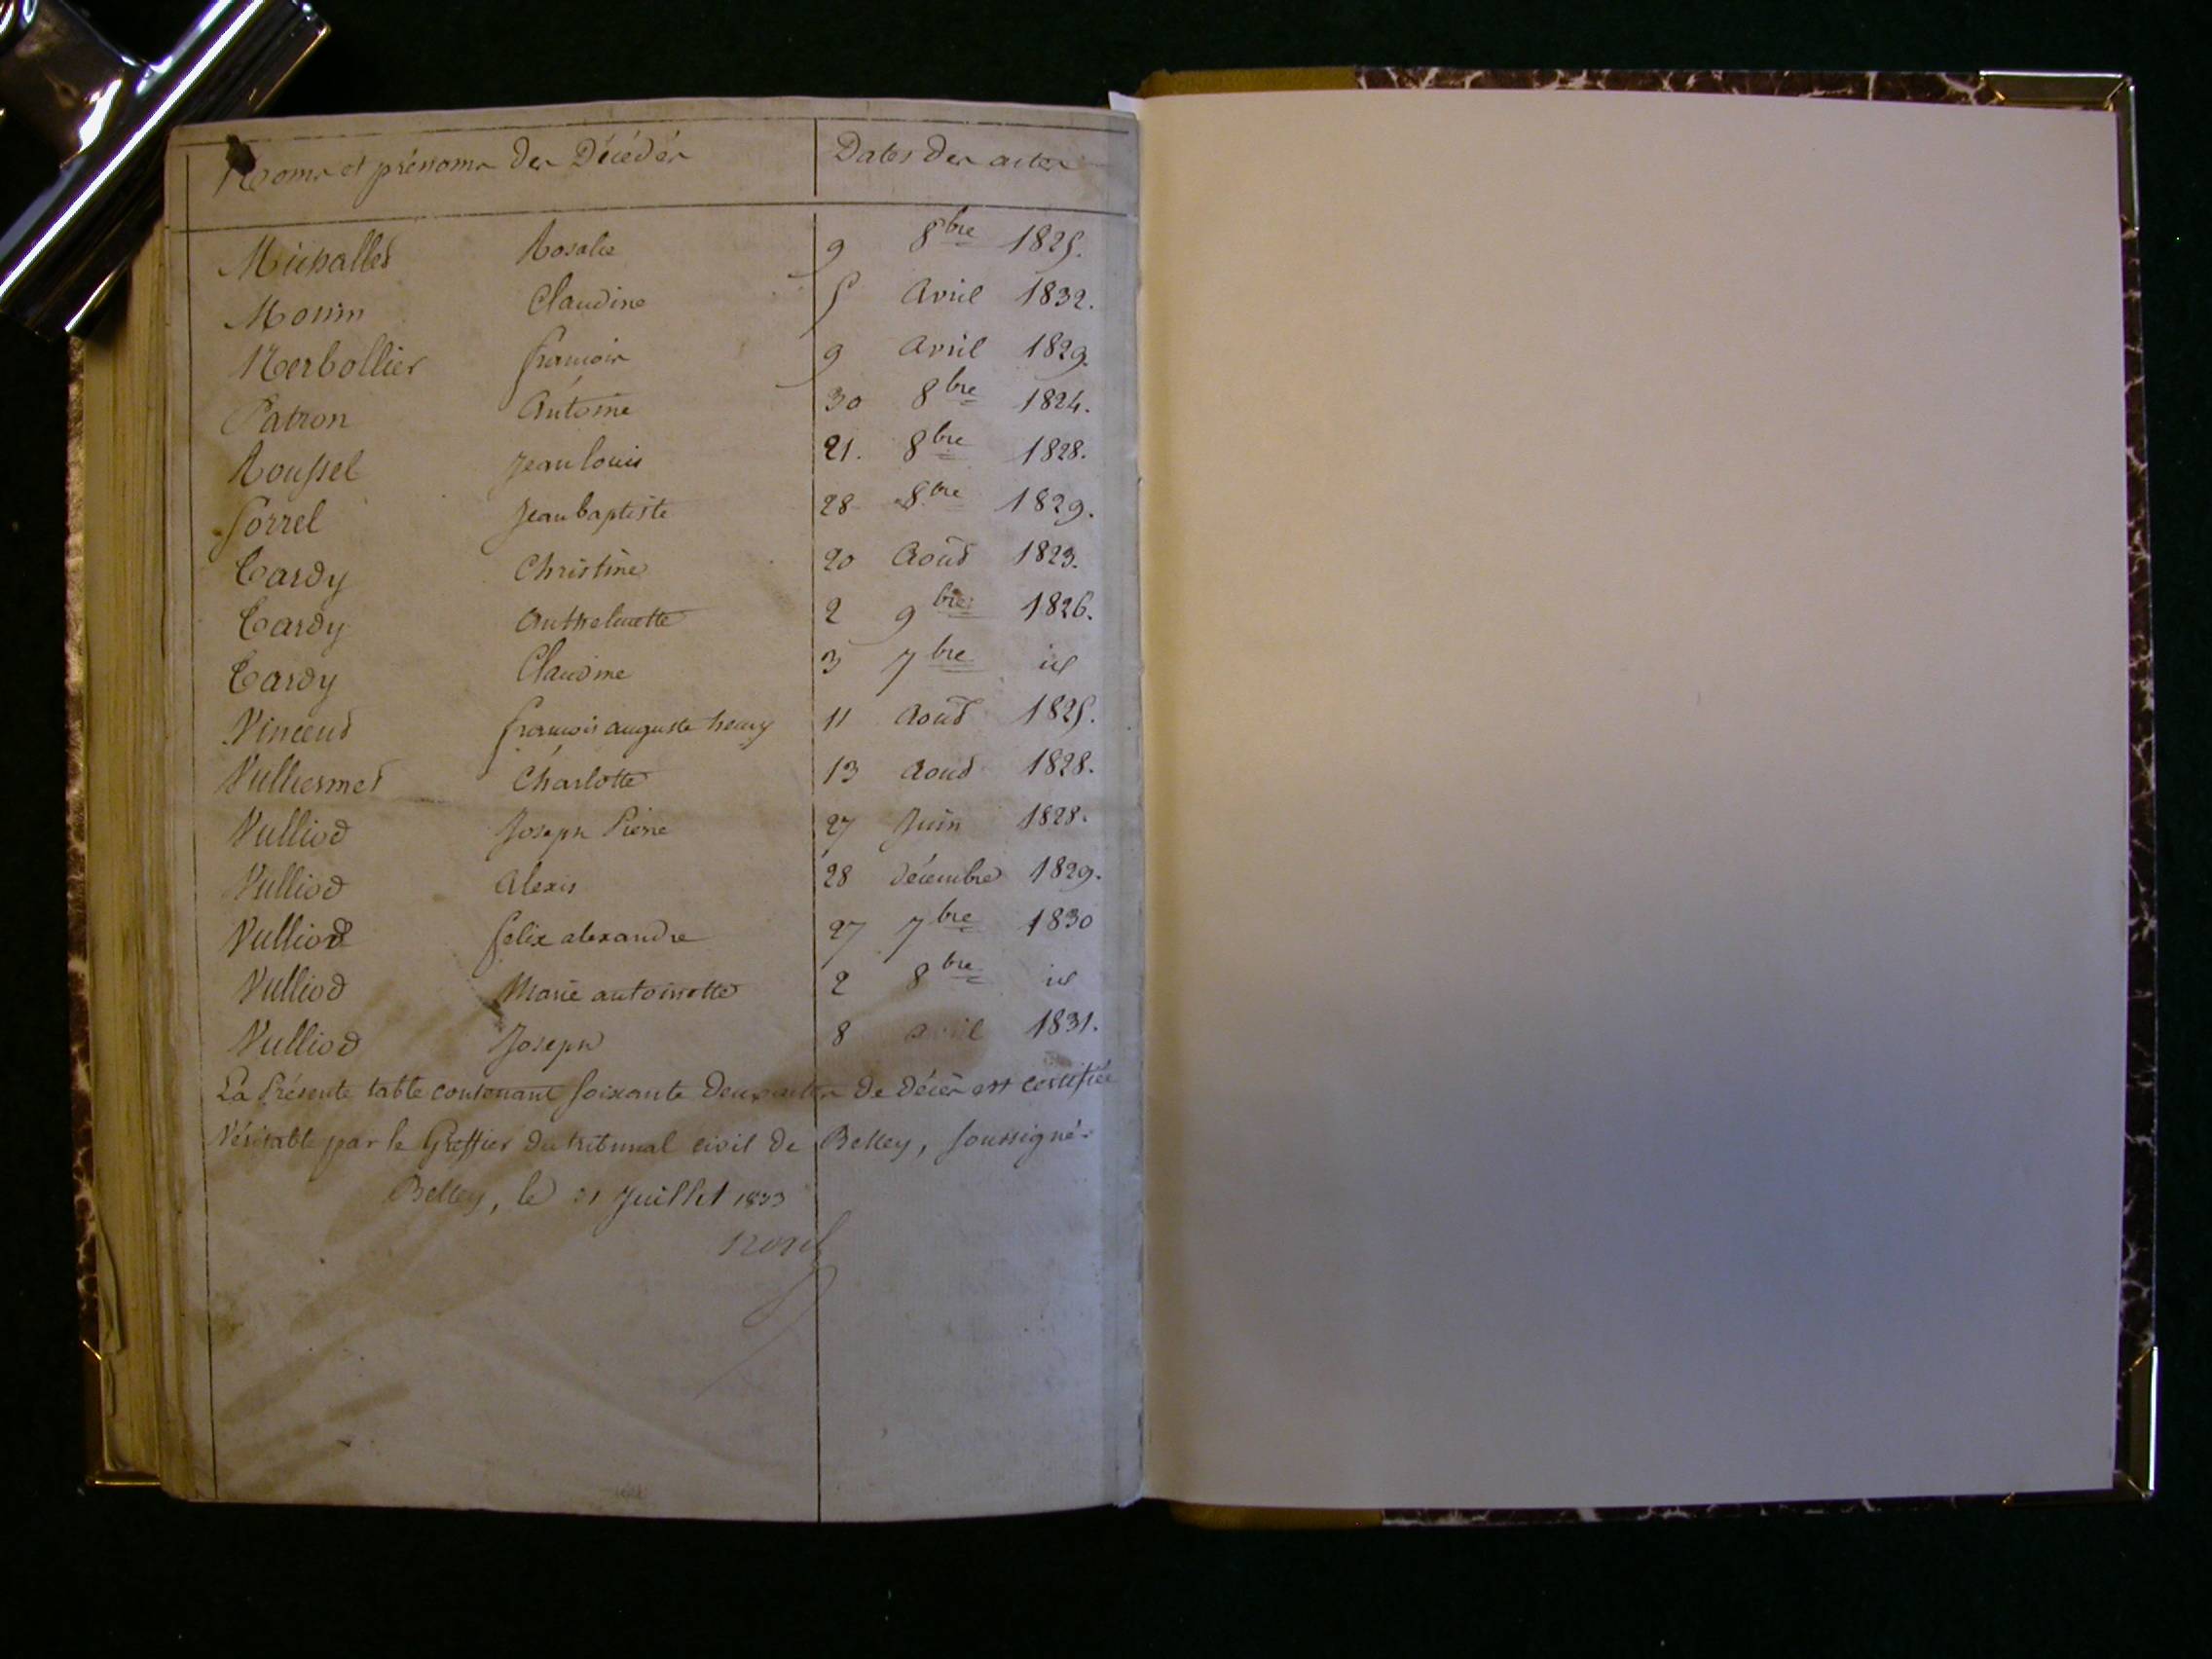 Noms et prénoms des Décédés Dates des actes
Michallet Rosalie 9 8bre 1825.
Monin Claudine 5 Avril 1832.
Nerbollier françois 9 Avril 1829.
Patron Antoine 30 8bre 1824.
Roussel Jean louis 21. 8bre 1828.
Sorrel Jean baptiste 28 8bre 1829.
Tardy Christine 20 Août 1823.
Tardy Anthelmette 2 9bre 1826.
Tardy Claudine 3 7bre id
Vincent françois auguste henry 11 Août 1825.
Vulliermet Charlotte 13 Aout 1828.
Vulliod Joseph Pierre 27 Juin 1828.
Vulliod Alexis 28 décembre 1829.
Vulliod felix alexandre 27 7bre 1830
Vulliod Marie antoinette 2 8bre id
Vulliod Joseph 8 avril 1831.
La Présente table contenant soixante deux actes de décès est certifiée
Véritable par le Greffier du tribunal civil de Belley, soussigné.
Belley, le 31 Juillet 1833